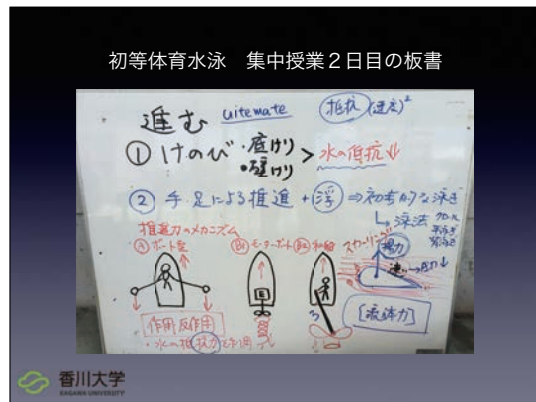 初等体育水泳 集中授業２日目の板書
進む uitemate 抵抗 (速度)²
① けのび ・底けり ・壁けり > 水の抵抗↓
② 手・足による推進 + 浮 ⇒ 初歩的な泳ぎ
↳ 泳法 クロール
平泳ぎ
推進力のメカニズム
Ⓐ ボート型 B1 モーターボート B2 和船
スカーリング
揚力
速い→圧力↓
作用反作用
[流体力]
・水の抵抗力を利用
香川大学
KAGAWA UNIVERSITY